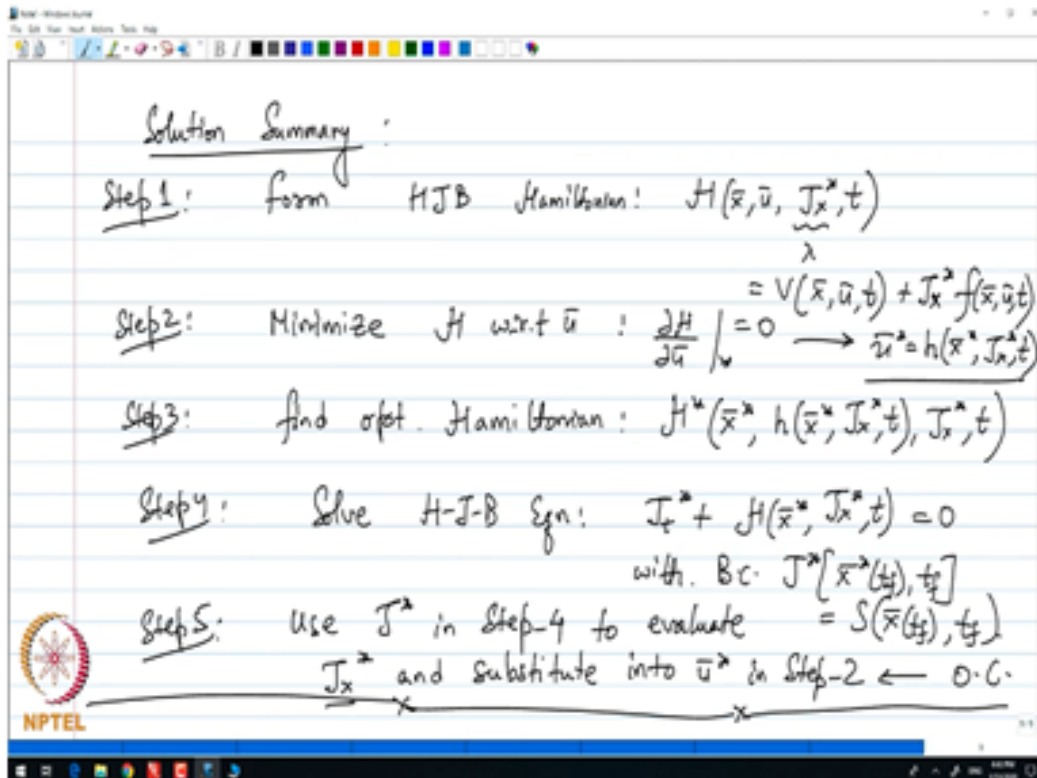 File Edit View Insert Actions Tools Help
B I
Solution Summary :
Step 1 : Form HJB Hamiltonian : H(x̄, ū, J*ₓ, t)
λ
= V(x̄, ū, t) + J*ₓ f(x̄, ū, t)
Step 2 : Minimize H w.r.t ū : ∂H/∂ū |* = 0 → ū* = h(x̄*, J*ₓ, t)
Step 3 : find opt. Hamiltonian : H*(x̄*, h(x̄*, J*ₓ, t), J*ₓ, t)
Step 4 : Solve H-J-B Eqn : J*ₜ + H(x̄*, J*ₓ, t) = 0
with. B.C. J*[x̄*(t_f), t_f]
= S(x̄(t_f), t_f).
Step 5 : Use J* in Step-4 to evaluate
J*ₓ and substitute into ū* in Step-2 ← O.C.
NPTEL